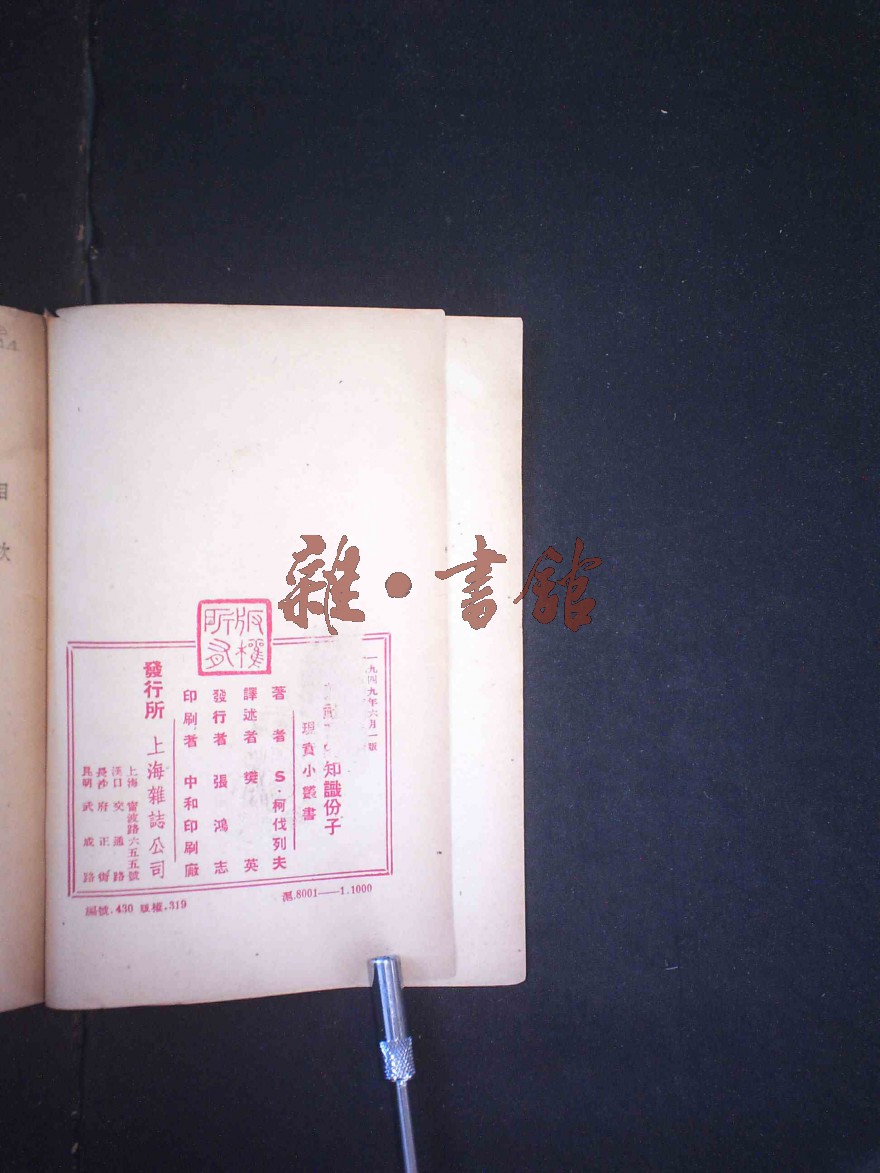 雜·書館
版權所有
一九四九年六月一版
知識份子
現實小叢書
著者 S·柯伐列夫
譯述者 樊英
發行者 張鴻志
印刷者 中和印刷廠
發行所 上海雜誌公司
上海 甯波路六五五號
漢口 交通路
長沙 府正街
昆明 武成路
滬.8001——1.1000
編號.430 版權.319